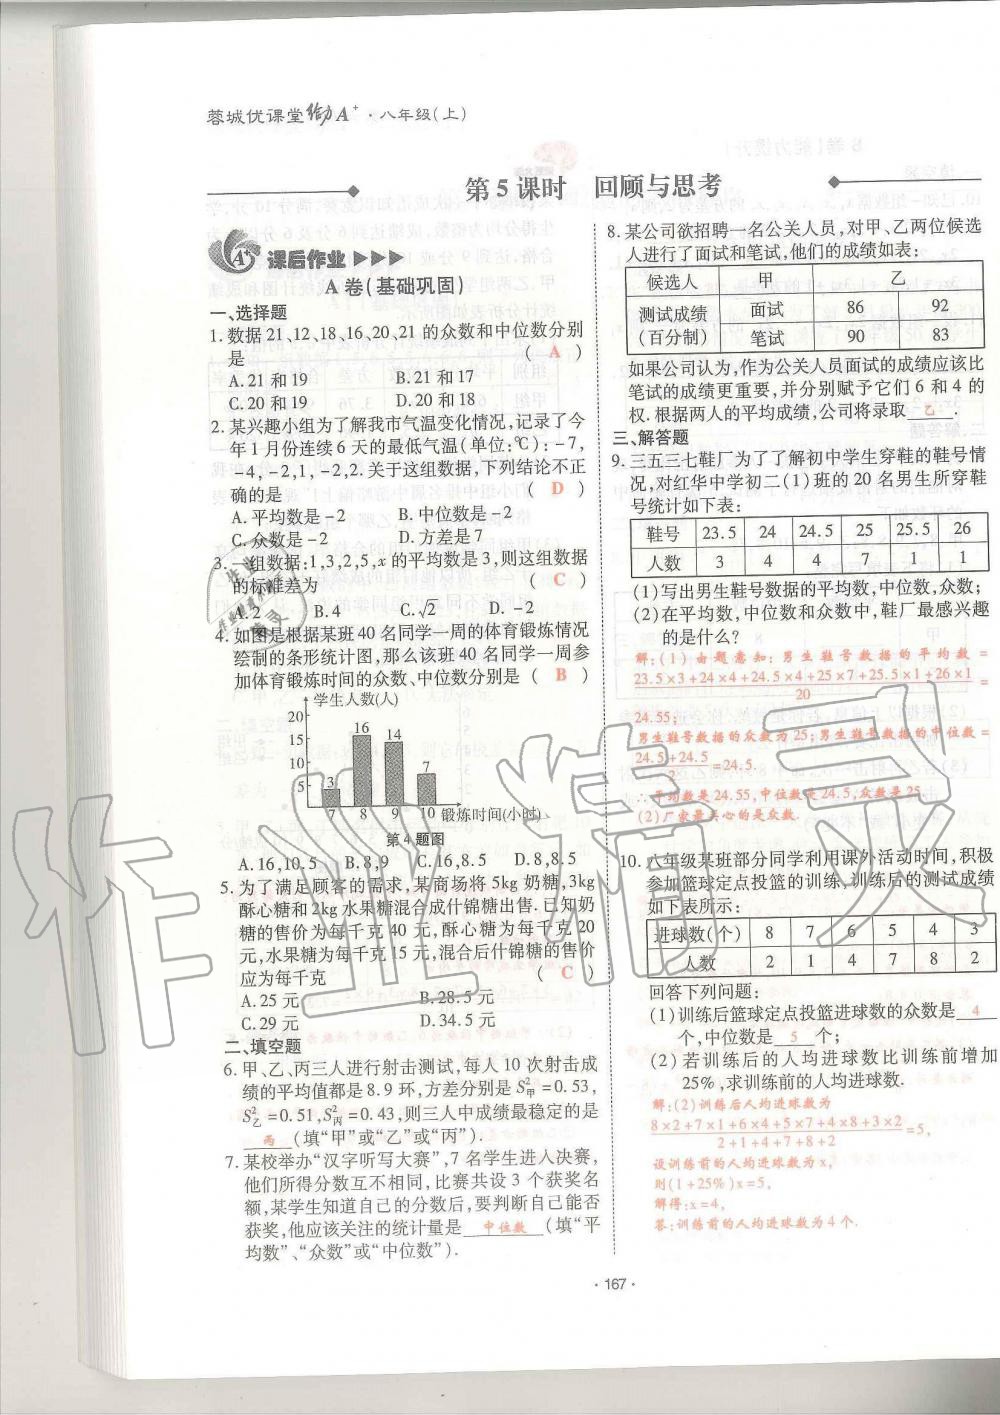 蓉城优课堂 给力A⁺·八年级(上)
第5课时 回顾与思考
A⁺ 课后作业
A卷(基础巩固)
一、选择题
1.数据21,12,18,16,20,21的众数和中位数分别
是 ( A )
A.21和19 B.21和17
C.20和19 D.20和18
2.某兴趣小组为了解我市气温变化情况,记录了今
年1月份连续6天的最低气温(单位:℃):-7,
-4,-2,1,-2,2.关于这组数据,下列结论不正
确的是 ( D )
A.平均数是-2 B.中位数是-2
C.众数是-2 D.方差是7
3.一组数据:1,3,2,5,x的平均数是3,则这组数据
的标准差为 ( C )
A.2 B.4 C.√2 D.-2
4.如图是根据某班40名同学一周的体育锻炼情况
绘制的条形统计图,那么该班40名同学一周参
加体育锻炼时间的众数、中位数分别是 ( B )
学生人数(人)
20
15
10
5
3 16 14 7
7 8 9 10 锻炼时间(小时)
第4题图
A.16,10.5 B.8,9 C.16,8.5 D.8,8.5
5.为了满足顾客的需求,某商场将5kg奶糖,3kg
酥心糖和2kg水果糖混合成什锦糖出售.已知奶
糖的售价为每千克40元,酥心糖为每千克20
元,水果糖为每千克15元,混合后什锦糖的售价
应为每千克 ( C )
A.25元 B.28.5元
C.29元 D.34.5元
二、填空题
6.甲、乙、丙三人进行射击测试,每人10次射击成
绩的平均值都是8.9环,方差分别是S²甲=0.53,
S²乙=0.51,S²丙=0.43,则三人中成绩最稳定的是
丙 (填“甲”或“乙”或“丙”).
7.某校举办“汉字听写大赛”,7名学生进入决赛,
他们所得分数互不相同,比赛共设3个获奖名
额,某学生知道自己的分数后,要判断自己能否
获奖,他应该关注的统计量是 中位数 (填“平
均数”、“众数”或“中位数”).
8.某公司欲招聘一名公关人员,对甲、乙两位候选
人进行了面试和笔试,他们的成绩如表:
候选人 甲 乙
测试成绩 面试 86 92
(百分制) 笔试 90 83
如果公司认为,作为公关人员面试的成绩应该比
笔试的成绩更重要,并分别赋予它们6和4的
权.根据两人的平均成绩,公司将录取 乙 .
三、解答题
9.三五三七鞋厂为了了解初中学生穿鞋的鞋号情
况,对红华中学初二(1)班的20名男生所穿鞋
号统计如下表:
鞋号 23.5 24 24.5 25 25.5 26
人数 3 4 4 7 1 1
(1)写出男生鞋号数据的平均数,中位数,众数;
(2)在平均数,中位数和众数中,鞋厂最感兴趣
的是什么?
解:(1)由题意知:男生鞋号数据的平均数=
23.5×3+24×4+24.5×4+25×7+25.5×1+26×1
20
=
24.55;
男生鞋号数据的众数为25;男生鞋号数据的中位数=
24.5+24.5
2
=24.5.
∴平均数是24.55,中位数是24.5,众数是25.
(2)厂家最关心的是众数.
10.八年级某班部分同学利用课外活动时间,积极
参加篮球定点投篮的训练,训练后的测试成绩
如下表所示:
进球数(个) 8 7 6 5 4 3
人数 2 1 4 7 8 2
回答下列问题:
(1)训练后篮球定点投篮进球数的众数是 4
个,中位数是 5 个;
(2)若训练后的人均进球数比训练前增加
25%,求训练前的人均进球数.
解:(2)训练后人均进球数为
8×2+7×1+6×4+5×7+4×8+3×2
2+1+4+7+8+2
=5,
设训练前的人均进球数为x,
则(1+25%)x=5,
解得:x=4,
答:训练前的人均进球数为4个.
·167·
作业精灵